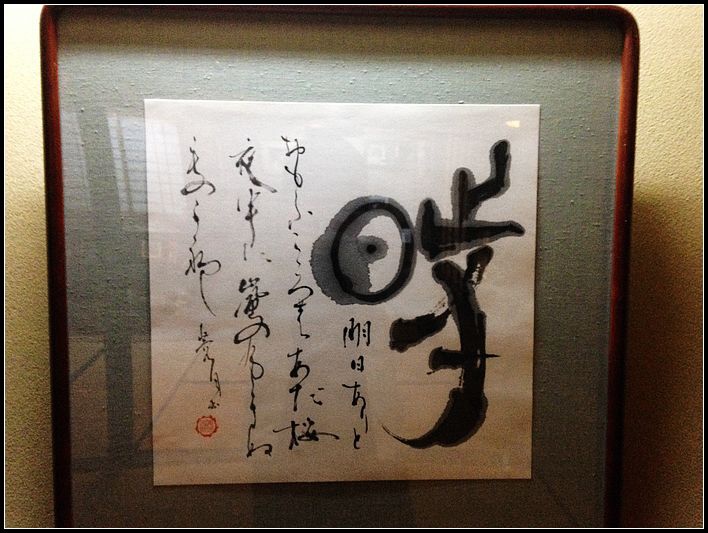 時
明日ありと
おもふこころのあだ桜
夜半に嵐のふかぬ
ものかは
月書